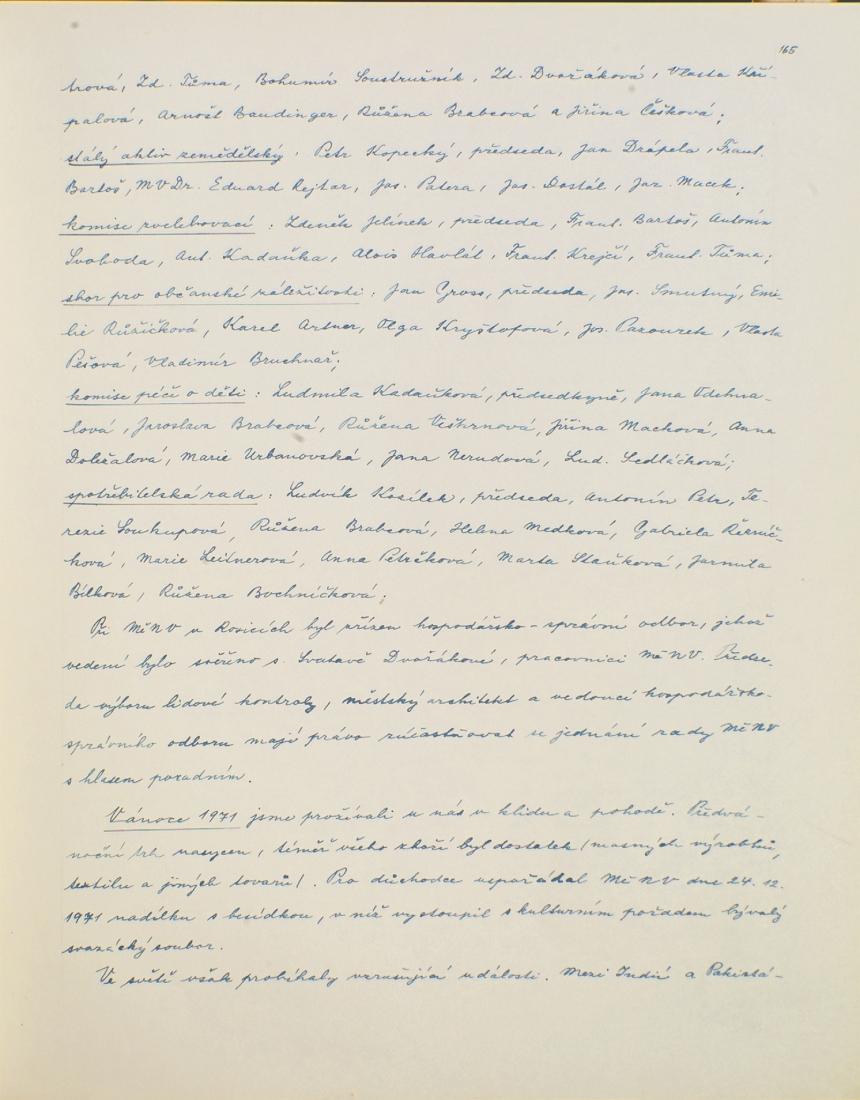 165
trová, Zd. Tůma, Bohumír Soustružník, Zd. Dvořáková, Vlasta Kří-
palová, Arnošt Baudinger, Růžena Brabcová a Jiřina Češková;
stálý aktiv zemědělský: Petr Kopecký, předseda, Jan Drápela, Frant.
Bartoš, MVDr. Eduard Rejtar, Jos. Patera, Jos. Dostál, Jar. Macek;
komise zvelebovací: Zdeněk Jelínek, předseda, Frant. Bartoš, Antonín
Svoboda, Ant. Kadaňka, Alois Havlát, Frant. Krejčí, Frant. Tůma;
sbor pro občanské záležitosti: Jan Gross, předseda, Jos. Smutný, Emi-
lie Růžičková, Karel Artner, Olga Kryštofová, Jos. Pazourek, Vlasta
Pešová, Vladimír Bruchnař;
komise péče o děti: Ludmila Kadaňková, předsedkyně, Jana Odehna-
lová, Jaroslava Brabcová, Růžena Veškrnová, Jiřina Machová, Anna
Doležalová, Marie Urbanovská, Jana Nerudová, Lud. Sedláčková;
spotřebitelská rada: Ludvík Kosílek, předseda, Antonín Petr, Te-
rezie Soukupová, Růžena Brabcová, Helena Medková, Gabriela Řezníč-
ková, Marie Leitnerová, Anna Petrčková, Marta Staňková, Jarmila
Bílková, Růžena Bochníčková;
Při MěNV v Rosicích byl zřízen hospodářsko-správní odbor, jehož
vedení bylo svěřeno s. Svatavě Dvořákové, pracovnici MěNV. Předse-
da výboru lidové kontroly, městský architekt a vedoucí hospodářsko-
správního odboru mají právo zúčastňovat se jednání rady MěNV
s hlasem poradním.
Vánoce 1971 jsme prožívali u nás v klidu a pohodě. Předvá-
noční trh nasycen, téměř všeho zboží byl dostatek (masných výrobků,
textilu a jiných tovarů). Pro důchodce uspořádal MěNV dne 24. 12.
1971 nadílku s besídkou, v níž vystoupil s kulturním pořadem bývalý
svazácký soubor.
Ve světě však probíhaly vzrušující události. Mezi Indií a Pákistá-